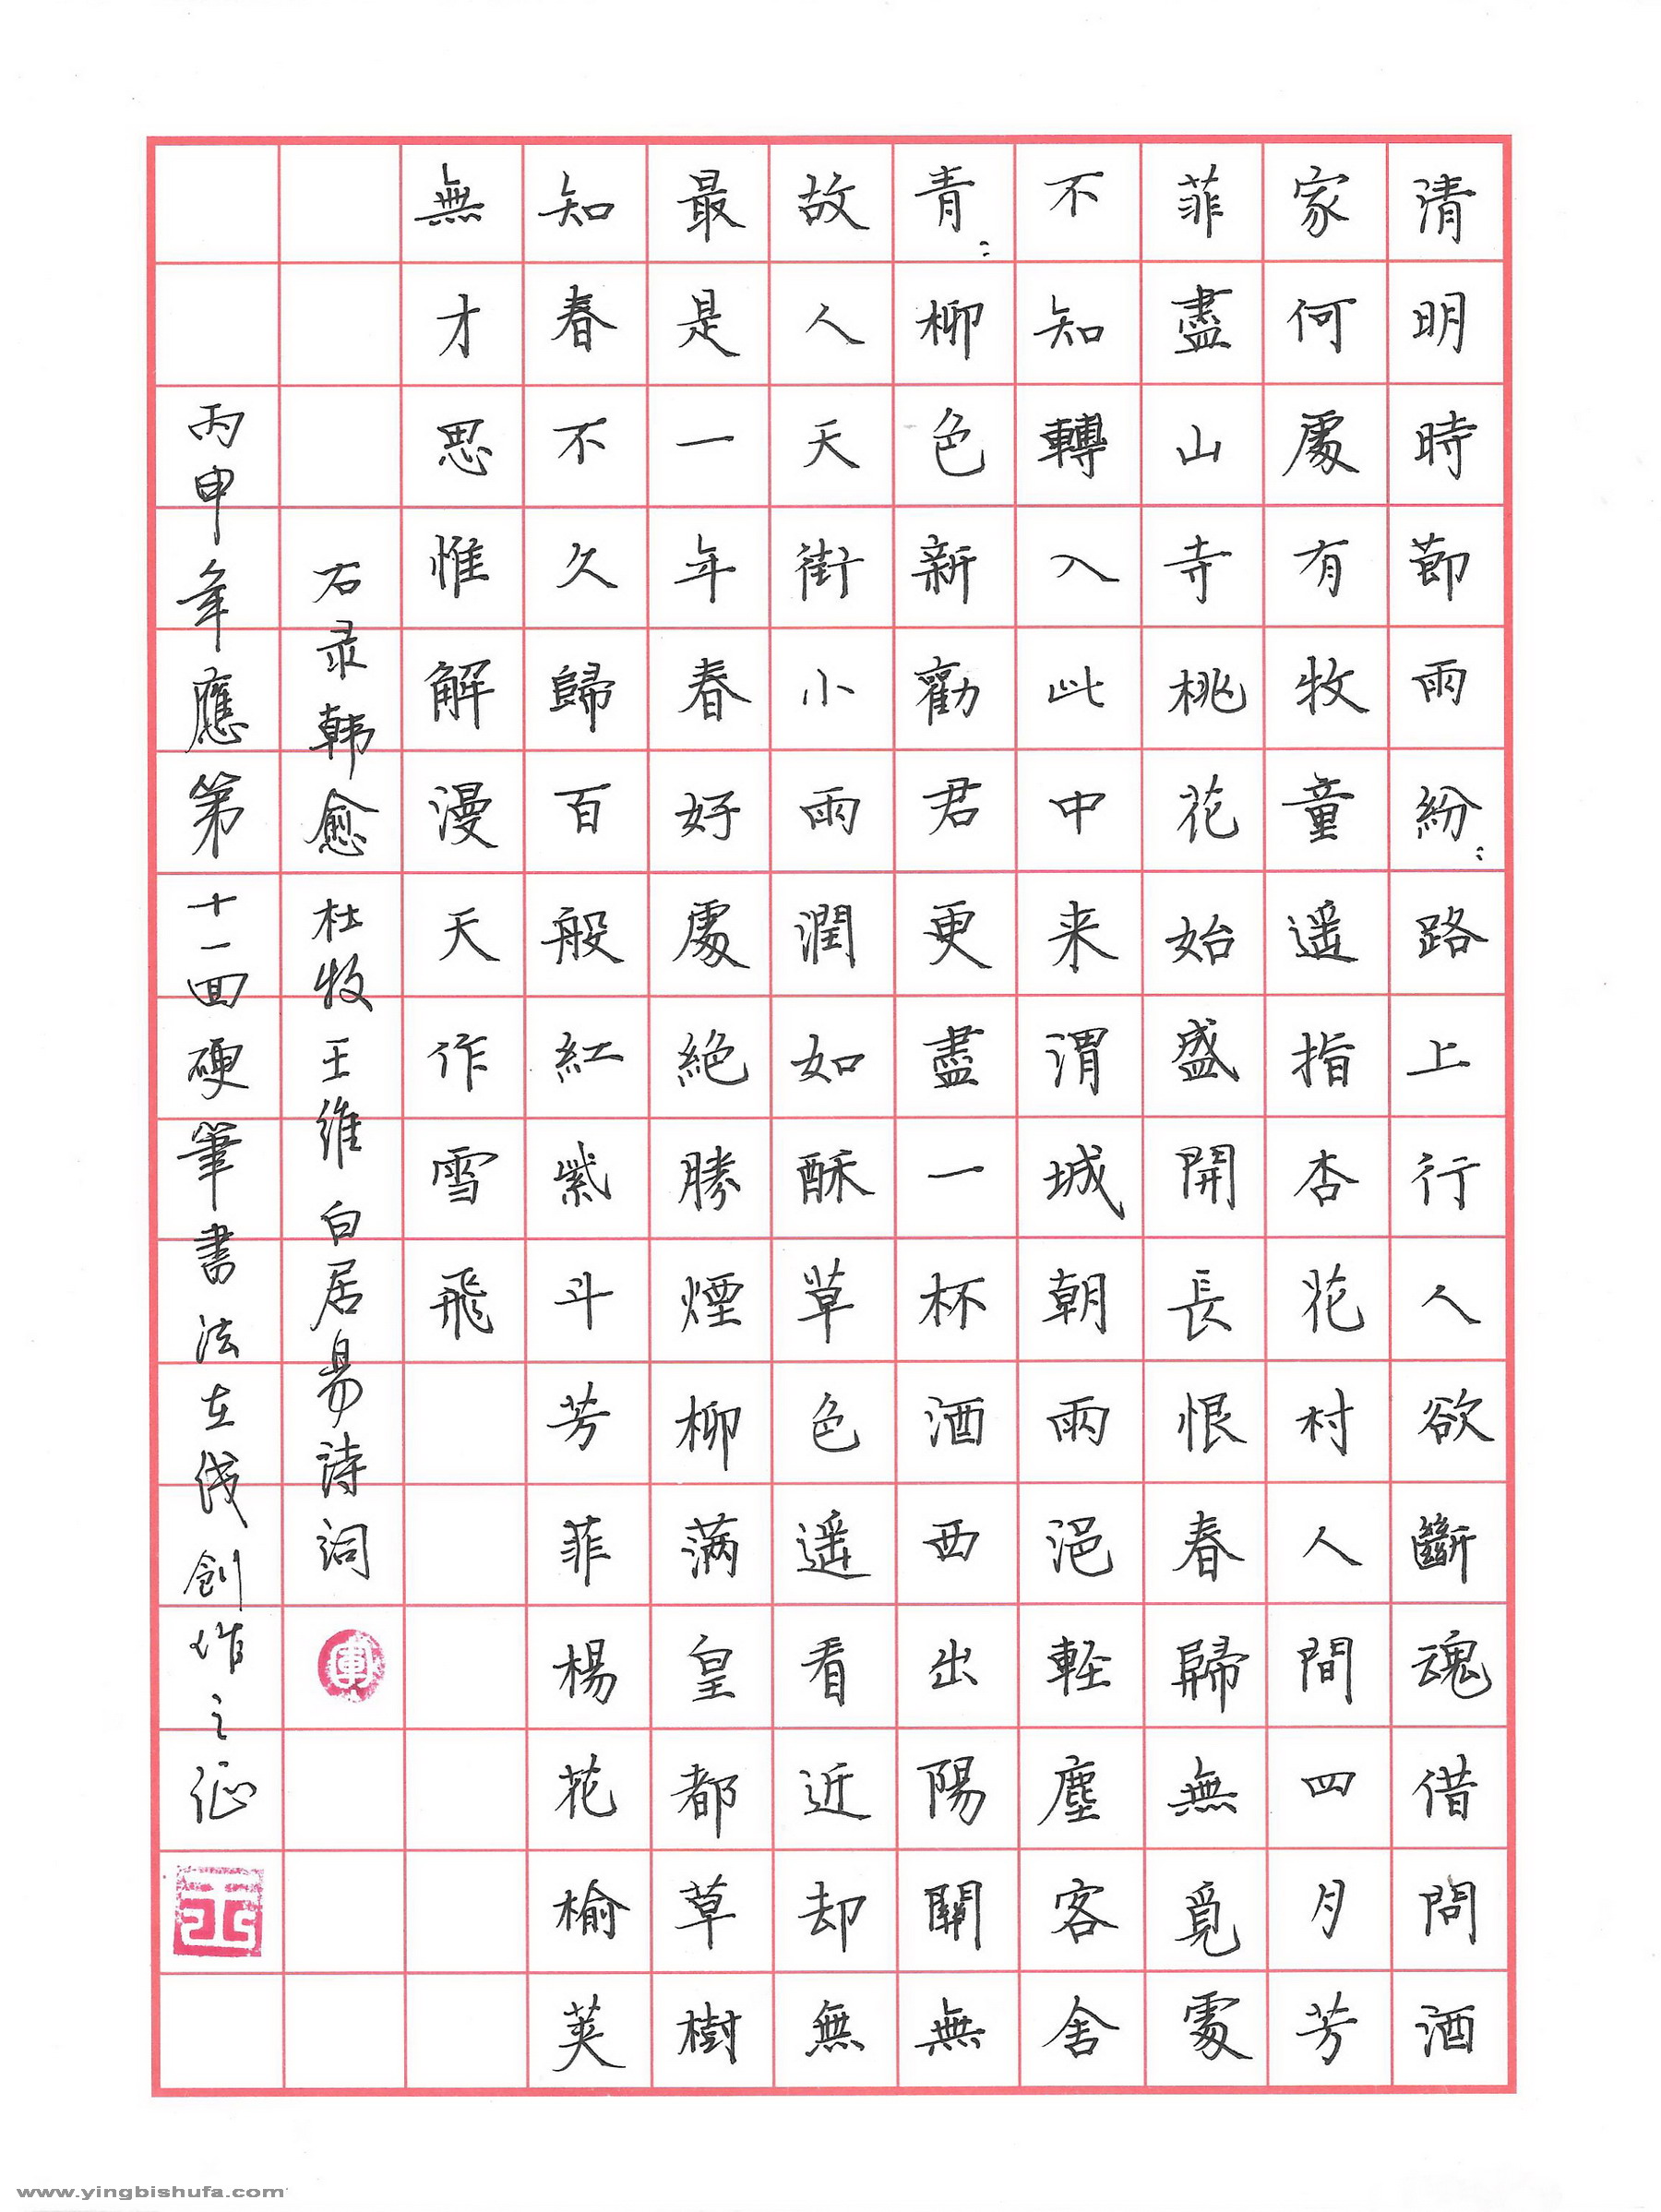 清明時節雨紛:路上行人欲斷魂借問酒
家何處有牧童遥指杏花村人間四月芳
菲盡山寺桃花始盛開長恨春歸無覓處
不知轉入此中来渭城朝雨浥輕塵客舍
青:柳色新勸君更盡一杯酒西出陽關無
故人天街小雨潤如酥草色遥看近却無
最是一年春好處絕勝煙柳满皇都草樹
知春不久歸百般紅紫斗芳菲楊花榆荚
無才思惟解漫天作雪飛
右录韩愈杜牧王維白居易詩詞
丙申年應第十一回硬筆書法在线創作之征
www.yingbishufa.com